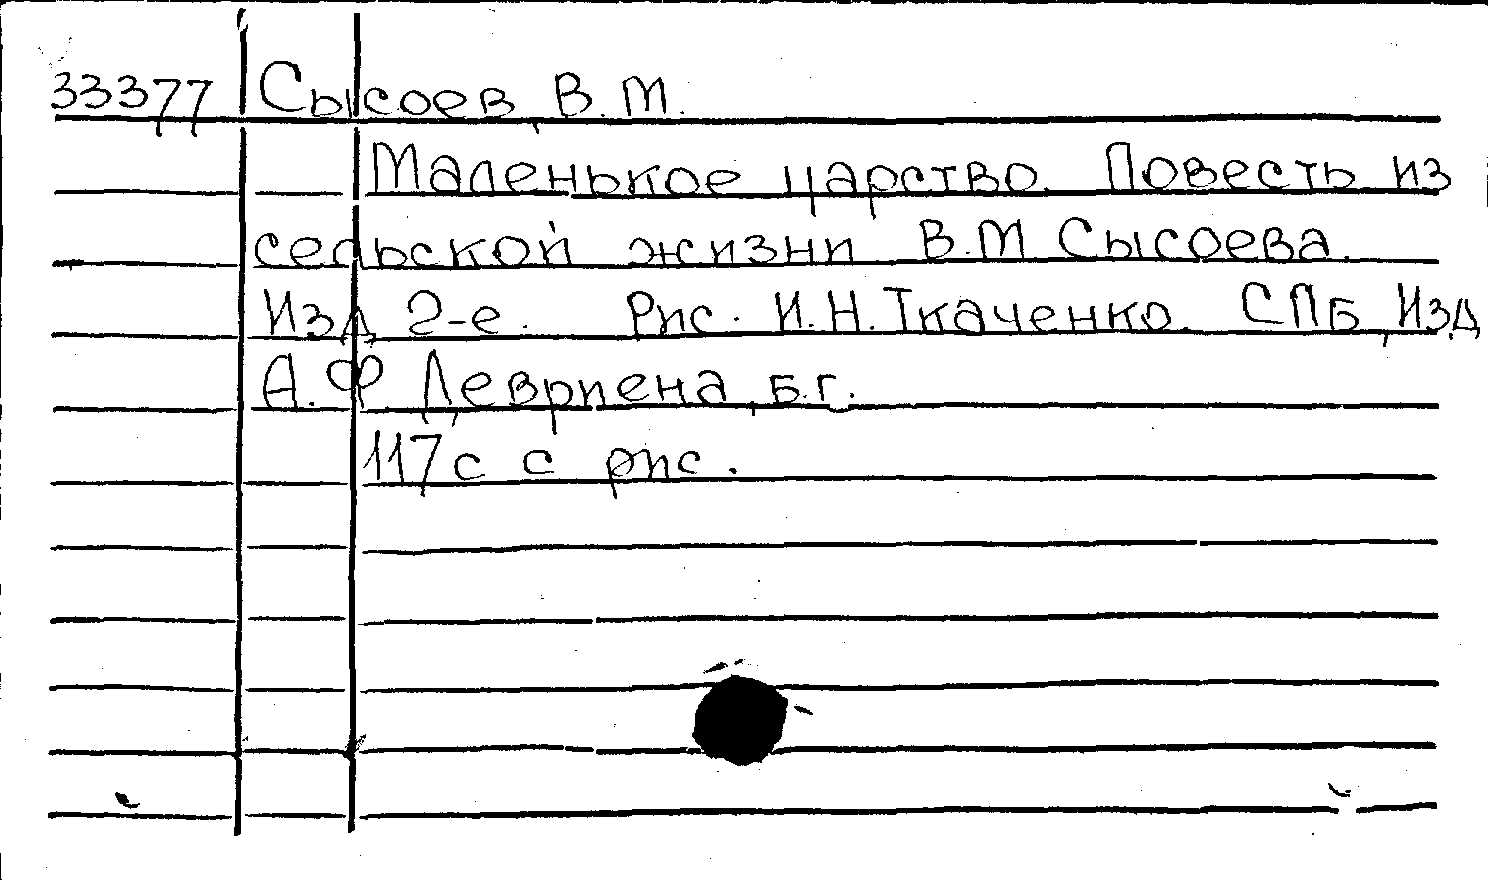 33377 Сысоев, В.М.
Маленькое царство. Повесть из
сельской жизни В.М Сысоева.
Изд 2-е. Рис. И.Н.Ткаченко. СПБ, Изд.
А.Ф Девриена, б.г.
117с с рис.